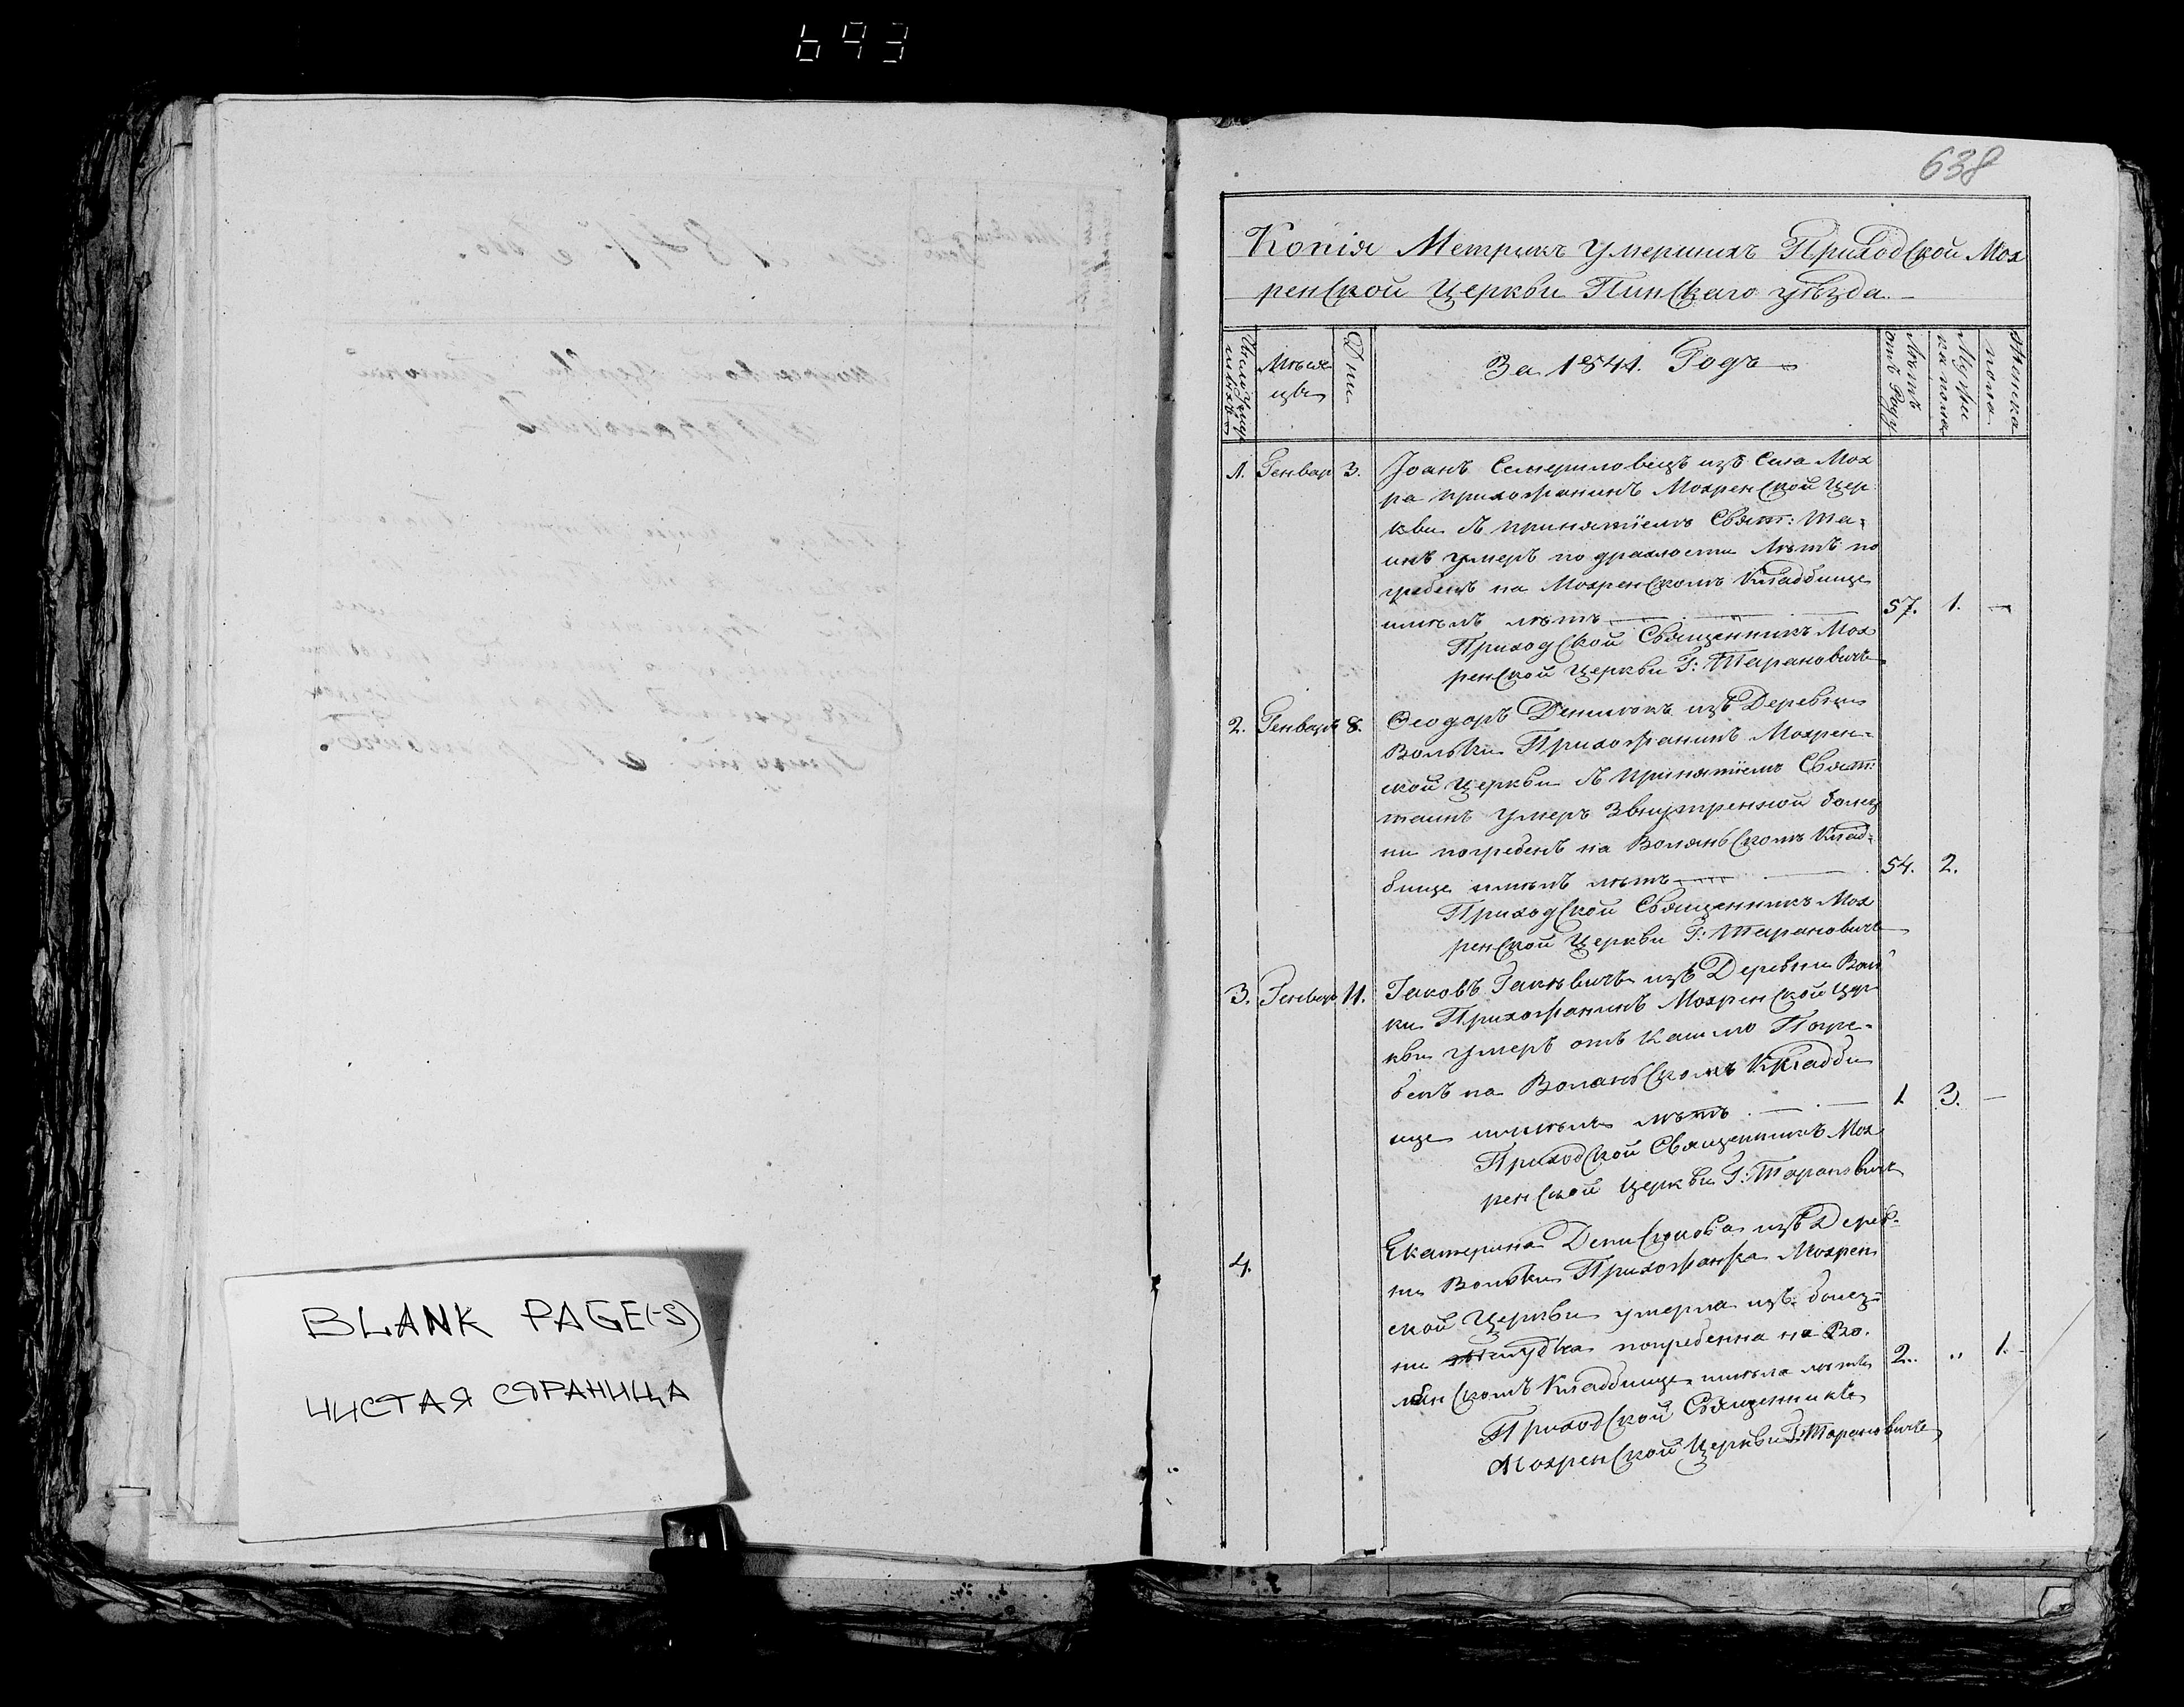 693
BLANK PAGE(-S)
ЧИСТАЯ СТРАНИЦА
638
Копія Метрикъ Умершихъ Приходской Мох
ренской Церкви Пинскаго уѣзда.
Мѣся
цы
Дни
За 1841. Годъ
Лѣтъ
отъ Роду
Мужес
ка пола
Женска
пола
1. Генвар 3. Іоанъ изъ Села Мох
ра прихожанинъ Мохренской Цер
кви съ принятіемъ Свят: Та-
инъ умеръ по драхлости Лѣтъ по
гребенъ на Мохренскомъ Кладбище
имѣлъ лѣтъ 57. 1. —
Приходской Священникъ Мох
ренской Церкви Г: Тарановичъ
2. Генваръ 8. Ѳеодоръ изъ Деревни
Вольки Прихожанинъ Мохрен-
ской Церкви съ принятіемъ Свят:
таинъ умеръ Звнутренной болез
ни погребенъ на Волянскомъ Клад-
бище имѣлъ лѣтъ 54. 2.
Приходской Священникъ Мох
ренской Церкви Г: Тарановичъ
3. Генваръ 11. Іаковъ изъ Деревни Воль
ки Прихожанинъ Мохренской Цер
кви умеръ отъ Кашлю Погре-
бенъ на Волянскомъ Кладби
ще имѣлъ лѣтъ 1 3. —
Приходской Священникъ Мох
ренской Церкви Г: Тарановичъ
4. Екатерина Денисюкова изъ Дерев-
ни Вольки Прихожанка Мохрен
ской Церкви умерла изъ болез-
ни желудка погребенна на Во-
лянскомъ Кладбище имѣла лѣтъ 2. " 1.
Приходской Священникъ
Мохренской Церкви Г: Тарановичъ